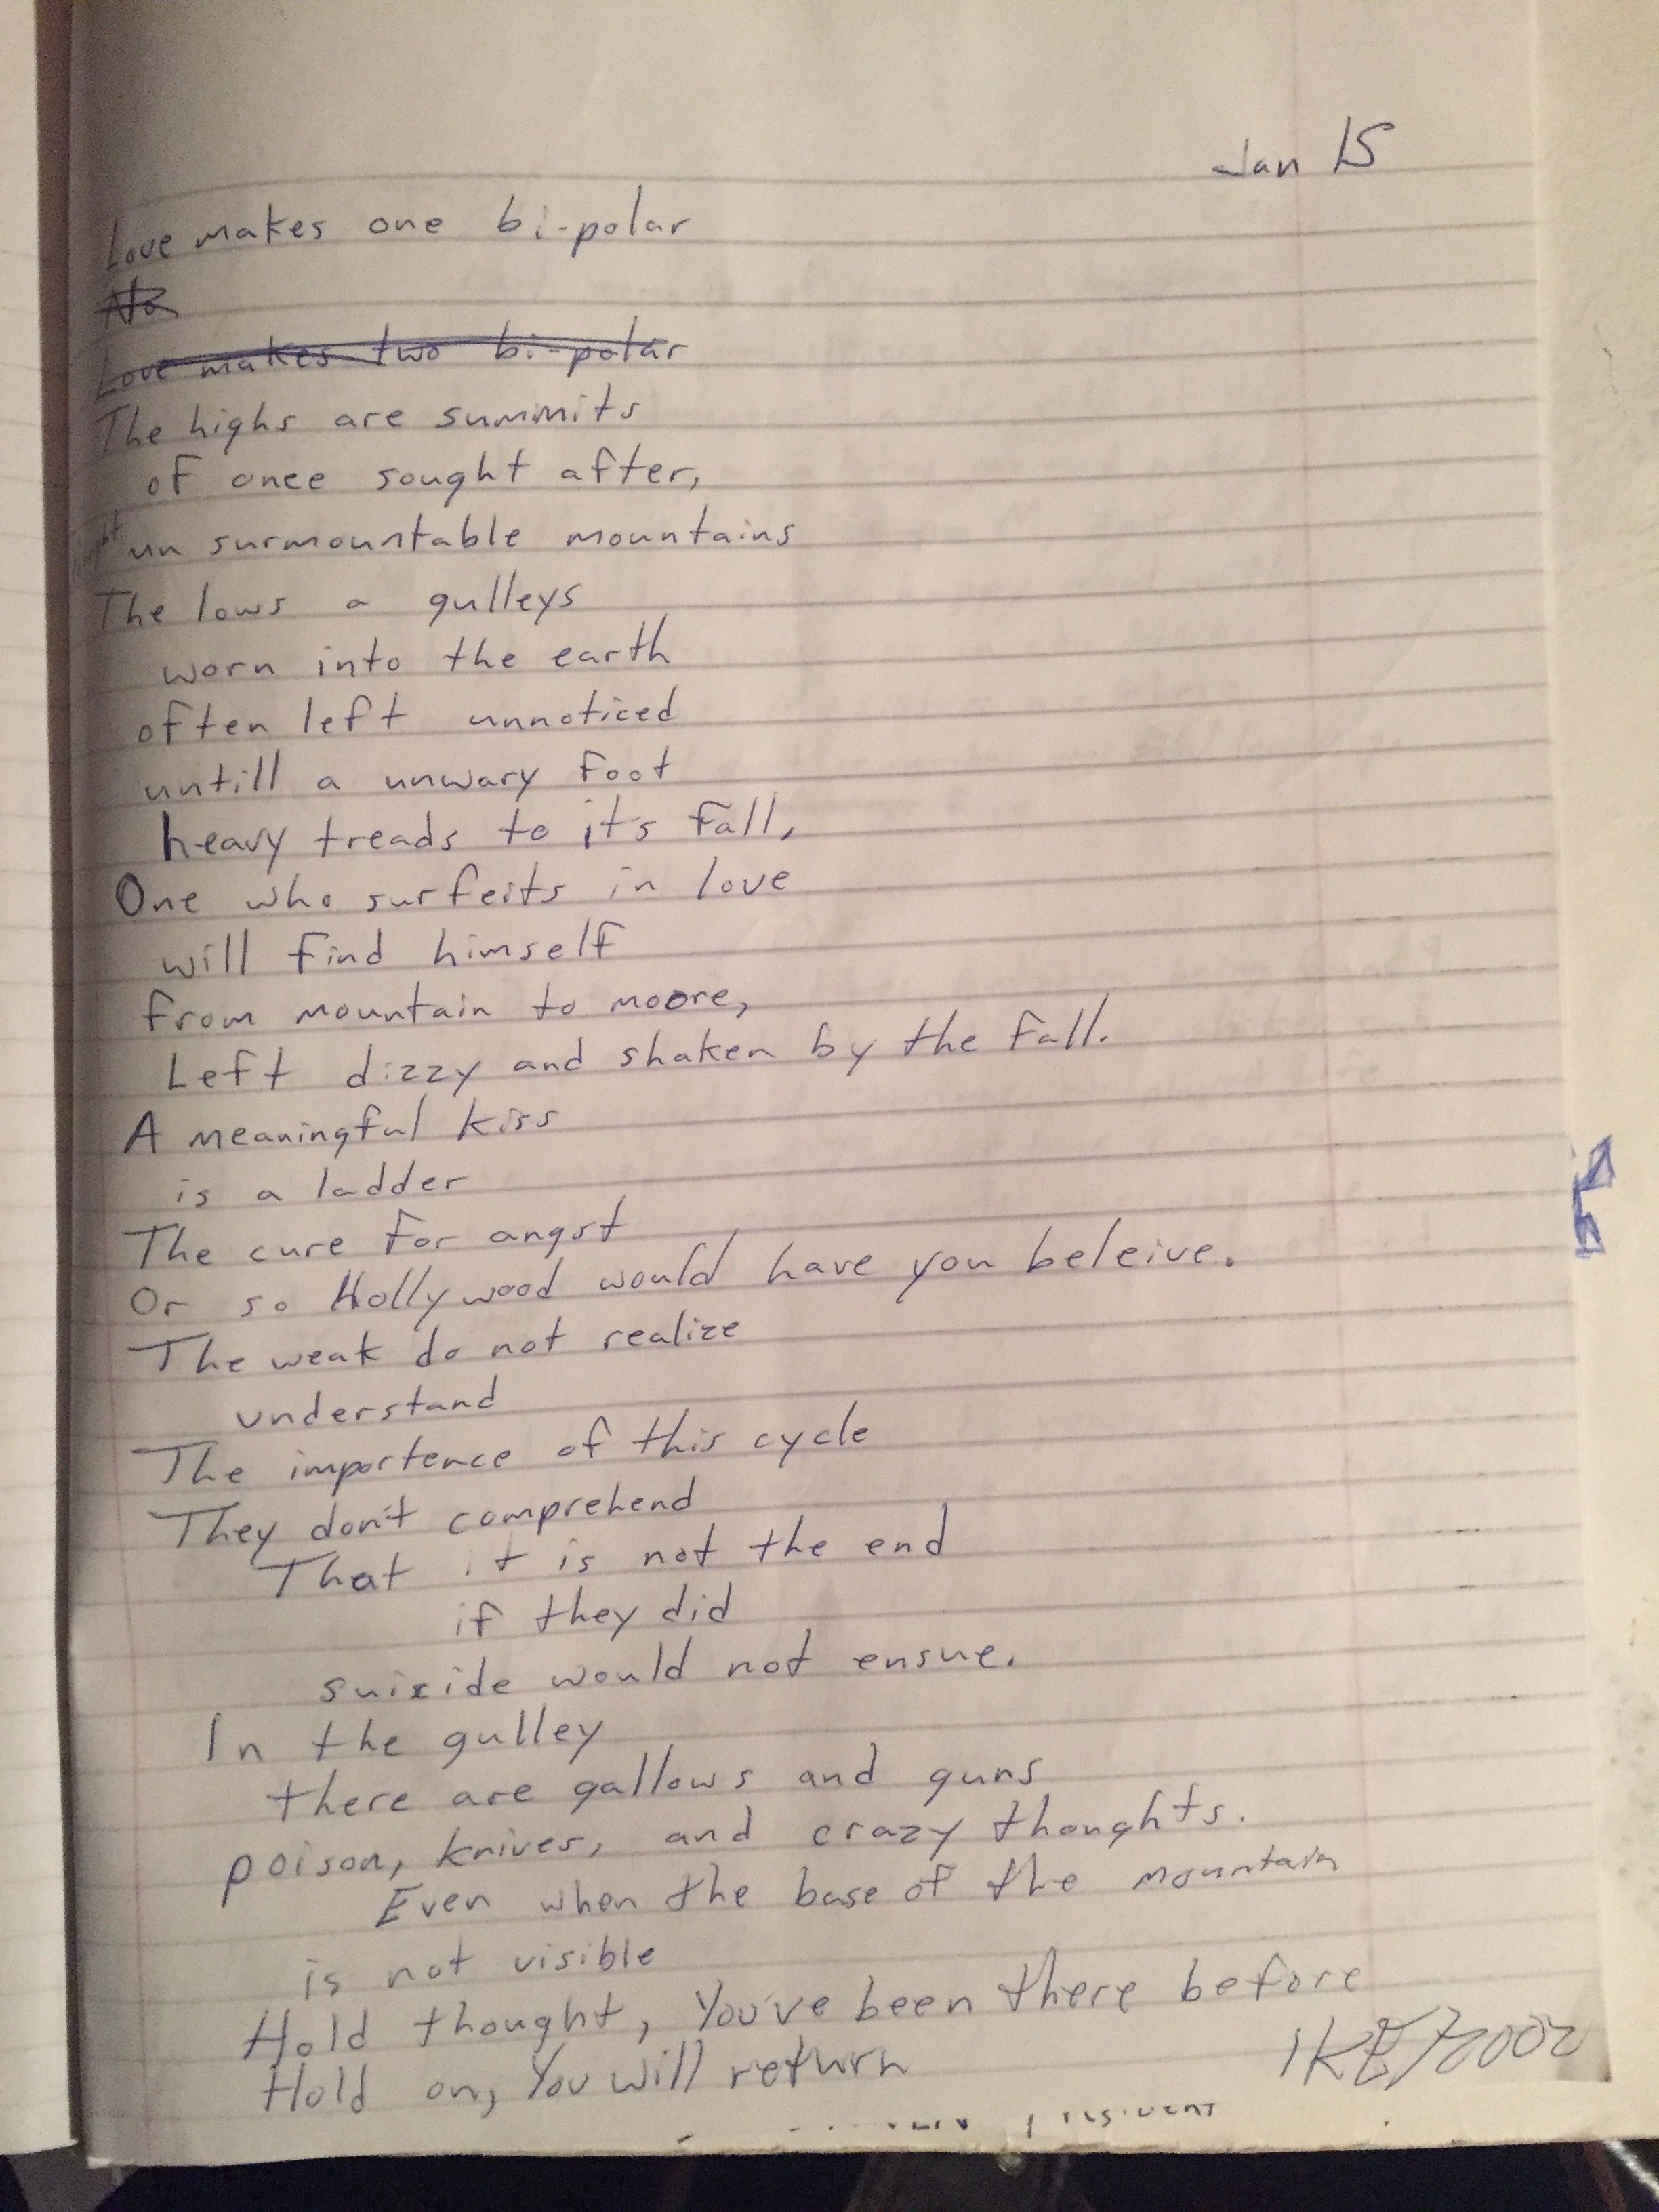 Jan 15
Love makes one bi-polar
No
Love makes two bi-polar
The highs are summits
of once sought after,
un surmountable mountains
The lows a gulleys
worn into the earth
often left unnoticed
untill a unwary foot
heavy treads to it's fall,
One who surfeits in love
will find himself
from mountain to moore,
Left dizzy and shaken by the fall.
A meaningful kiss
is a ladder
The cure for angst
Or so Hollywood would have you beleive.
The weak do not realize
understand
The importence of this cycle
They don't comprehend
That it is not the end
if they did
suicide would not ensue.
In the gulley
there are gallows and guns
poison, knives, and crazy thoughts.
Even when the base of the mountain
is not visible
Hold thought, You've been there before
Hold on, You will return
IKE/2002